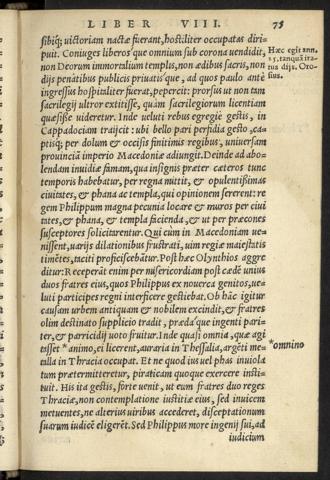 LIBER VIII. 75
sibiq; victoriam nactæ fuerant, hostiliter occupatas diri-
puit. Coniuges liberos que omnium sub corona vendidit,
non Deorum immortalium templis, non ædibus sacris, non
dijs penatibus publicis priuatis que, ad quos paulò antè
ingressus hospitaliter fuerat, pepercit: prorsus ut non tam
sacrilegij ultror extitisse, quàm sacrilegiorum licentiam
quæsisse uideretur. Inde ueluti rebus egregiè gestis, in
Cappadociam traijcit: ubi bello pari perfidia gesto, ca-
ptisq; per dolum & occisis finitimis regibus, uniuersam
prouinciã imperio Macedoniæ adiungit. Deinde ad abo-
lendam inuidiæ famam, qua insignis præter cæteros tunc
temporis habebatur, per regna mittit, & opulentissimas
ciuitates, & phana ac templa, qui opinionem sererent: re
gem Philippum magna pecunia locare & muros per ciui
tates, & phana, & templa facienda, & ut per præcones
susceptores solicitarentur. Qui cùm in Macedoniam ue-
nissent, uarijs dilationibus frustrati, uim regiæ maiestatis
timẽtes, taciti proficiscebãtur. Post hæc Olynthios aggre
ditur: Receperãt enim per misericordiam post cædẽ unius
duos fratres eius, quos Philippus ex nouerca genitos, ue-
luti participes regni interficere gestiebat. Ob hãc igitur
causam urbem antiquam & nobilem excindit, & fratres
olim destinato supplicio tradit, præda que ingenti pari-
ter, & parricidij uoto fruitur. Inde quasi omnia, quæ agi
tasset * animo, ei licerent, auraria in Thessalia, argẽti me
talla in Thracia occupat. Et ne quod ius uel phas inuiola
tum prætermitteretur, piraticam quoque exercere insti-
tuit. His ita gestis, fortè uenit, ut eum fratres duo reges
Thraciæ, non contemplatione iustitiæ eius, sed inuicem
metuentes, ne alterius uiribus accederet, disceptationum
suarum iudicẽ eligerẽt. Sed Philippus more ingenij sui, ad
iudicium
Hæc egit ann.
25. tanquã ira-
tus dijs. Oro-
sius.
*omnino